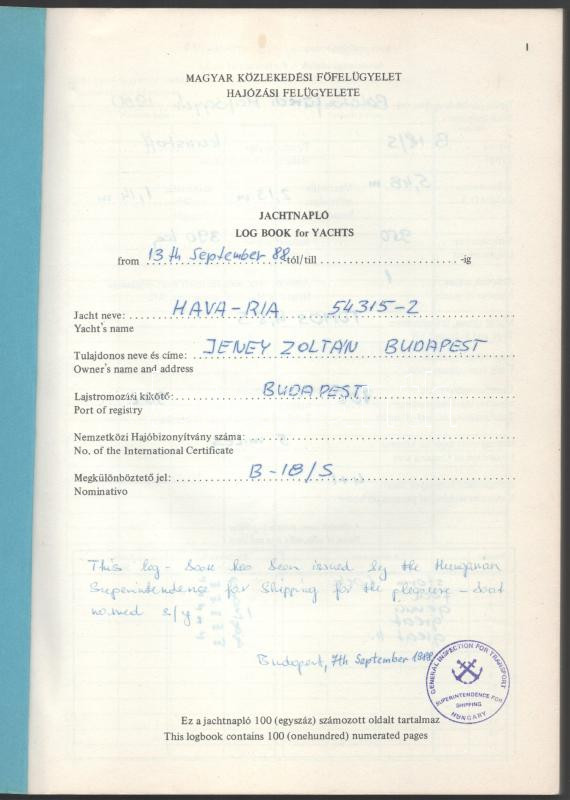 1
MAGYAR KÖZLEKEDÉSI FŐFELÜGYELET
HAJÓZÁSI FELÜGYELETE
JACHTNAPLÓ
LOG BOOK for YACHTS
from 13 th September 88 tól/till -ig
Jacht neve: HAVA-RIA 54315-2
Yacht's name
Tulajdonos neve és címe: JENEY ZOLTAN BUDAPEST
Owner's name and address
Lajstromozási kikötő: BUDAPEST
Port of registry
Nemzetközi Hajóbizonyítvány száma
No. of the International Certificate
Megkülönböztető jel: B-18/S
Nominativo
This log-book has been issued by the Hungarian
Superintendence for Shipping for the pleasure-boat
named s/y
Budapest, 7th September 1988
GENERAL INSPECTION FOR TRANSPORT
SUPERINTENDENCE FOR
SHIPPING
HUNGARY
Ez a jachtnapló 100 (egyszáz) számozott oldalt tartalmaz
This logbook contains 100 (onehundred) numerated pages